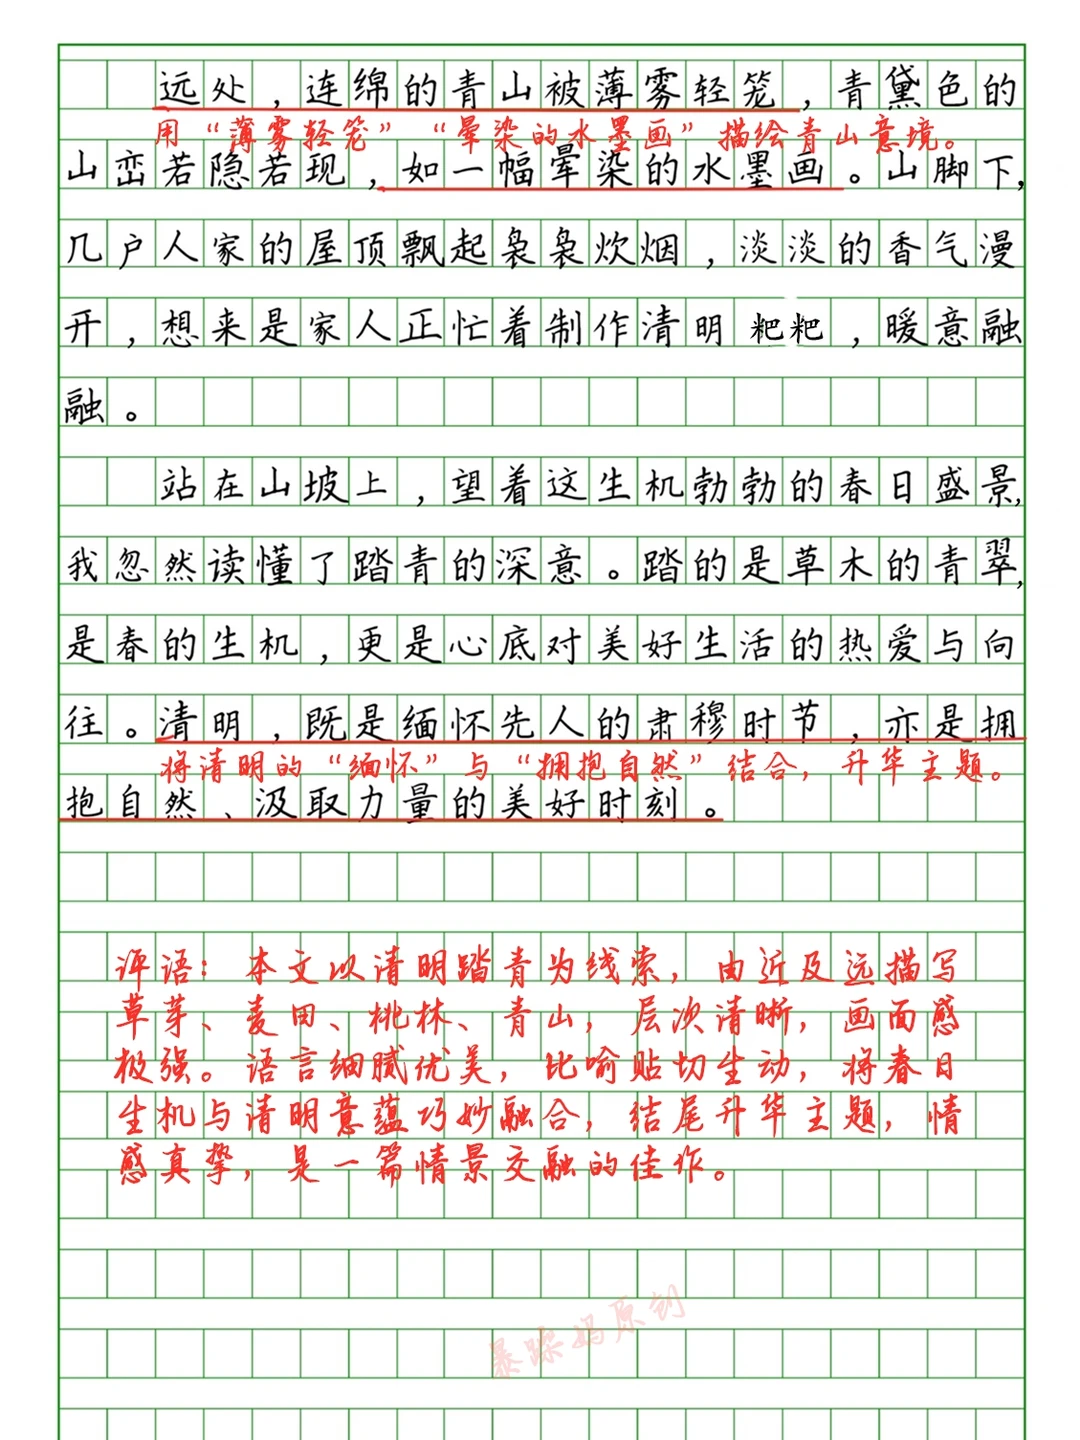 远处，连绵的青山被薄雾轻笼，青黛色的
用“薄雾轻笼”“晕染的水墨画”描绘青山意境。
山峦若隐若现，如一幅晕染的水墨画。山脚下，
几户人家的屋顶飘起袅袅炊烟，淡淡的香气漫
开，想来是家人正忙着制作清明粑粑，暖意融
融。
站在山坡上，望着这生机勃勃的春日盛景，
我忽然读懂了踏青的深意。踏的是草木的青翠，
是春的生机，更是心底对美好生活的热爱与向
往。清明，既是缅怀先人的肃穆时节，亦是拥
将清明的“缅怀”与“拥抱自然”结合，升华主题。
抱自然、汲取力量的美好时刻。
评语：本文以清明踏青为线索，由近及远描写
草芽、麦田、桃林、青山，层次清晰，画面感
极强。语言细腻优美，比喻贴切生动，将春日
生机与清明意蕴巧妙融合，结尾升华主题，情
感真挚，是一篇情景交融的佳作。
暴躁妈原创